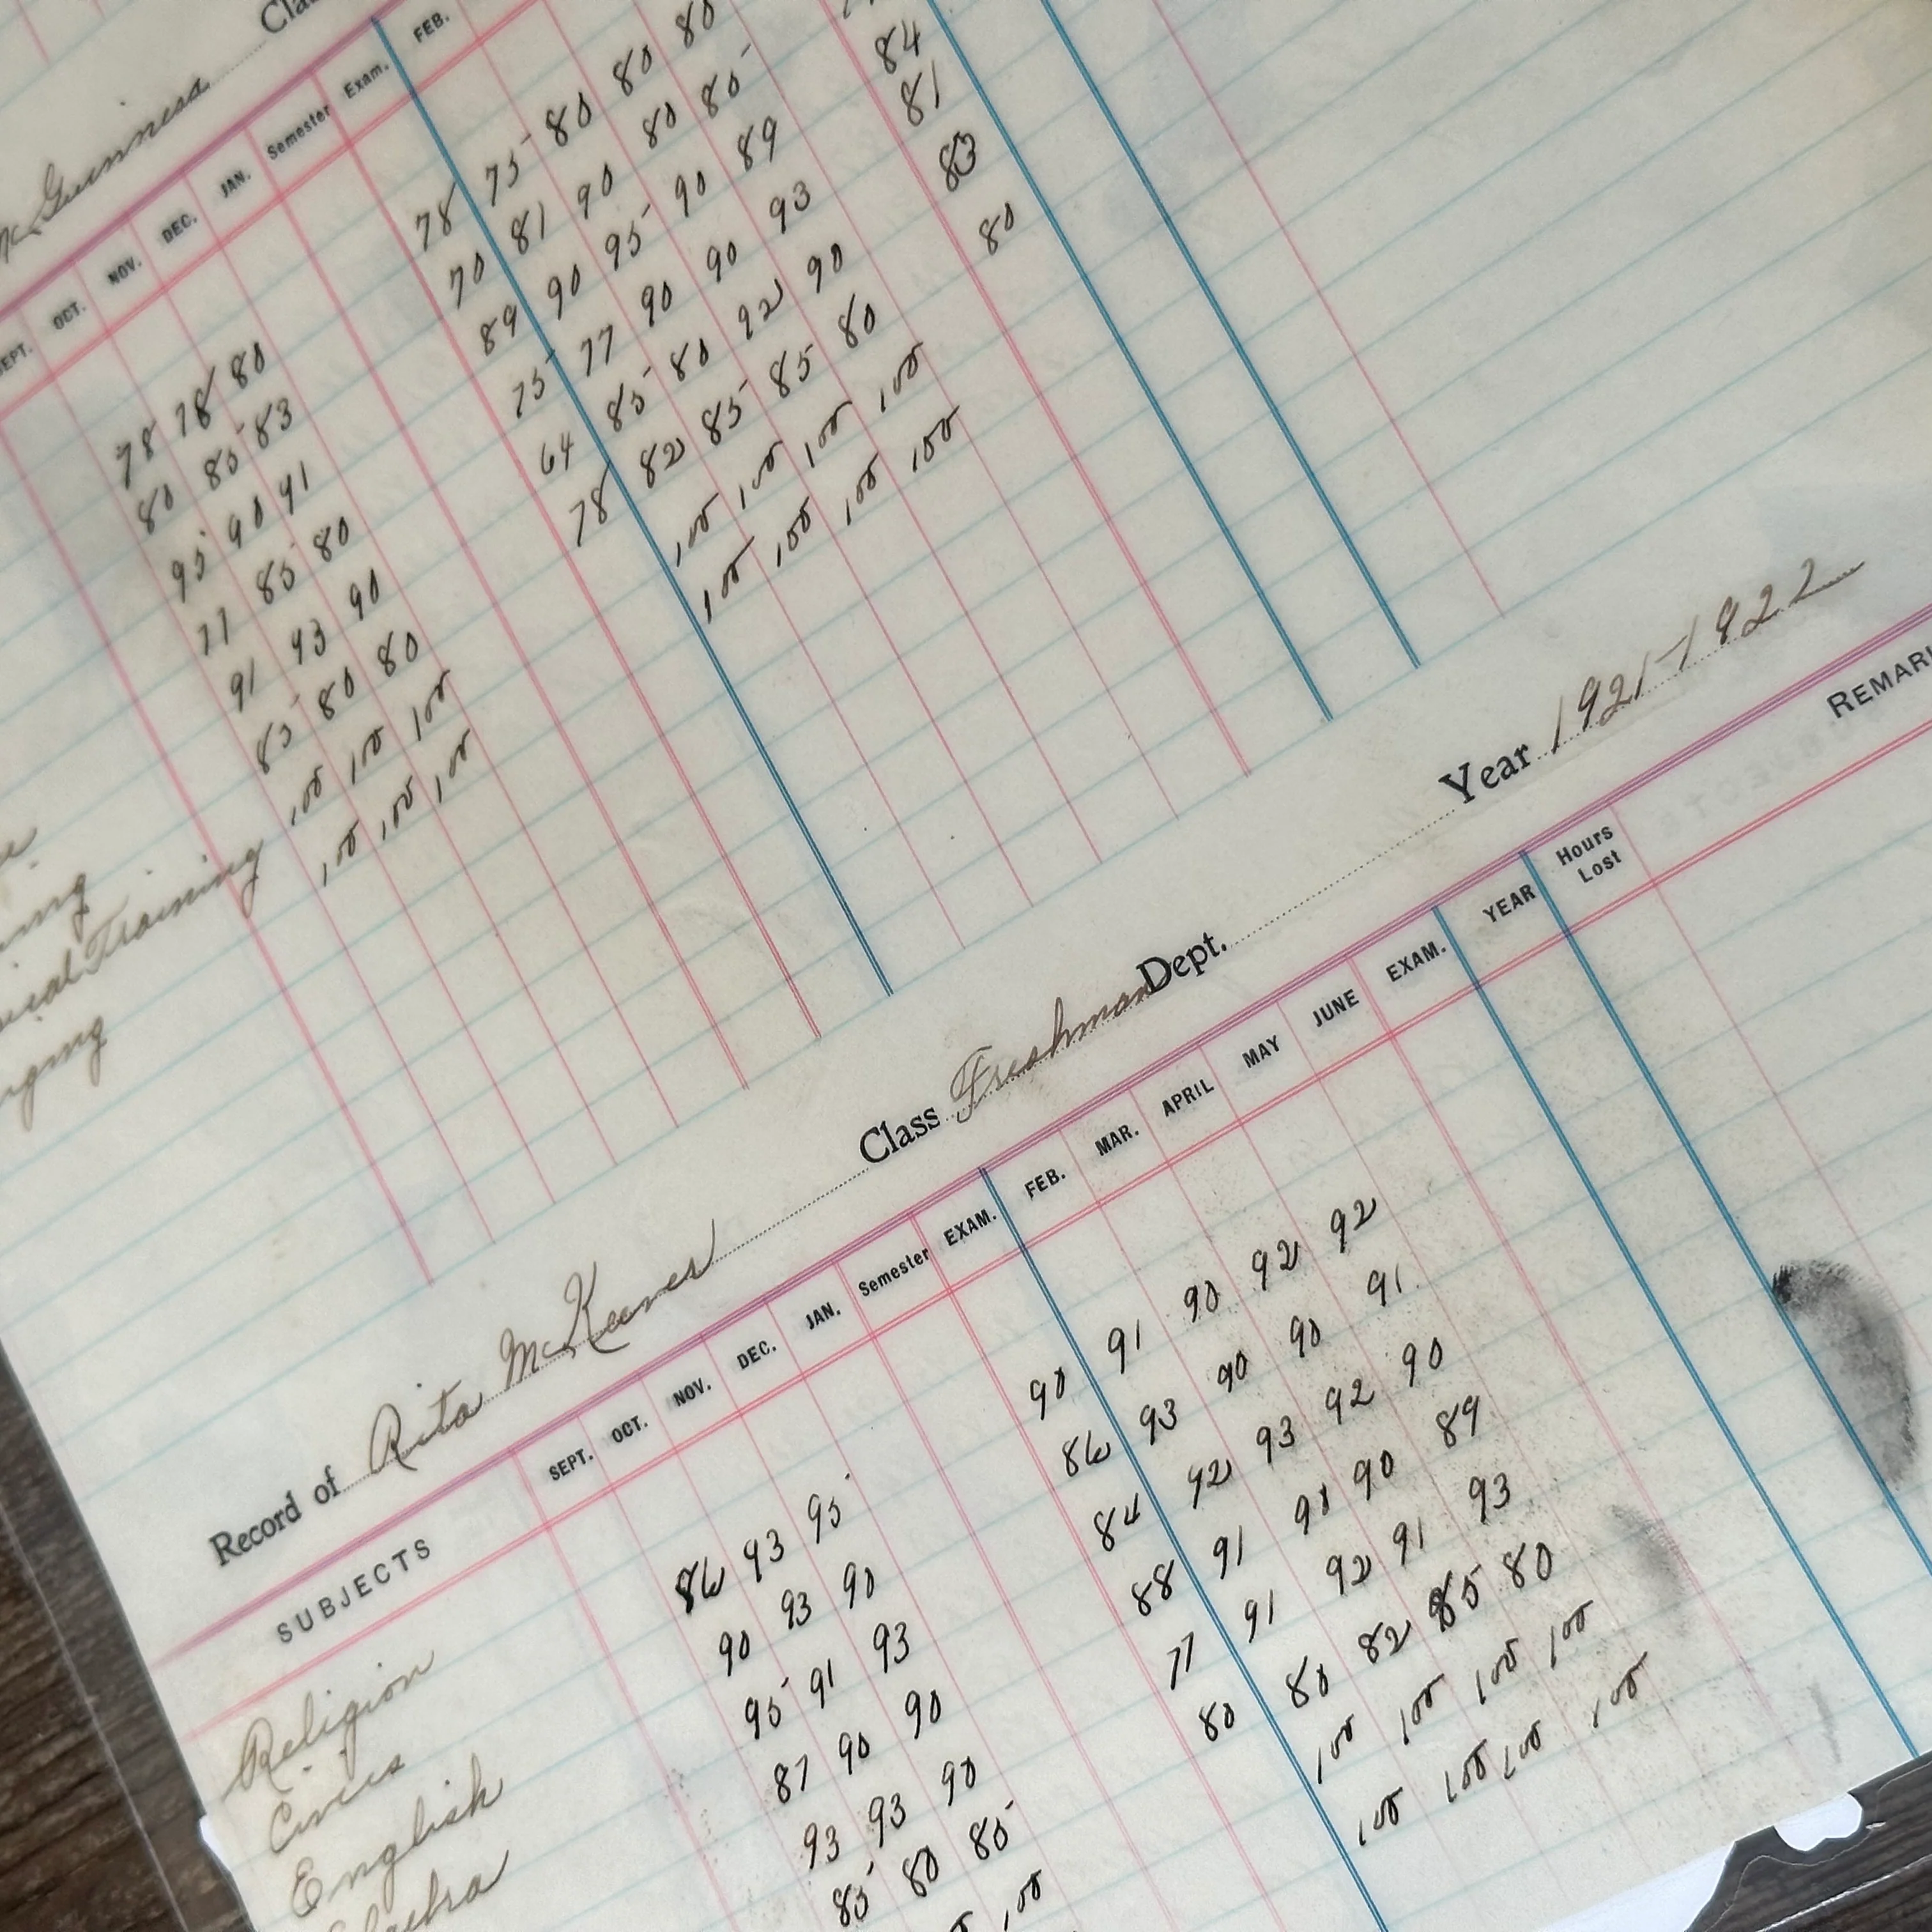 Guinness
OCT. NOV. DEC. JAN. Semester Exam. FEB.
78 78 80 78 75 80 80 80
80 85 83 70 81 90 80 85 84
95 90 91 89 90 95 90 89 81
77 85 80 75 77 90 90 93 83
91 93 90 64 85 80 92 90 80
85 80 80 78 82 85 85 80
100 100 100 100 100 100 100
Training 100 100 100 100 100 100 100
Record of Rita McKeever Class Freshman Dept. Year 1921-1922
SUBJECTS SEPT. OCT. NOV. DEC. JAN. Semester EXAM. FEB. MAR. APRIL MAY JUNE EXAM. YEAR Hours Lost
Religion 86 93 95 90 91 90 92 92
Civics 90 93 90 86 93 90 90 91
English 95 91 93 84 92 93 92 90
87 90 90 88 91 90 90 89
93 93 90 77 91 92 91 93
85 80 85 80 80 82 85 80
100 100 100 100 100
100 100 100 100